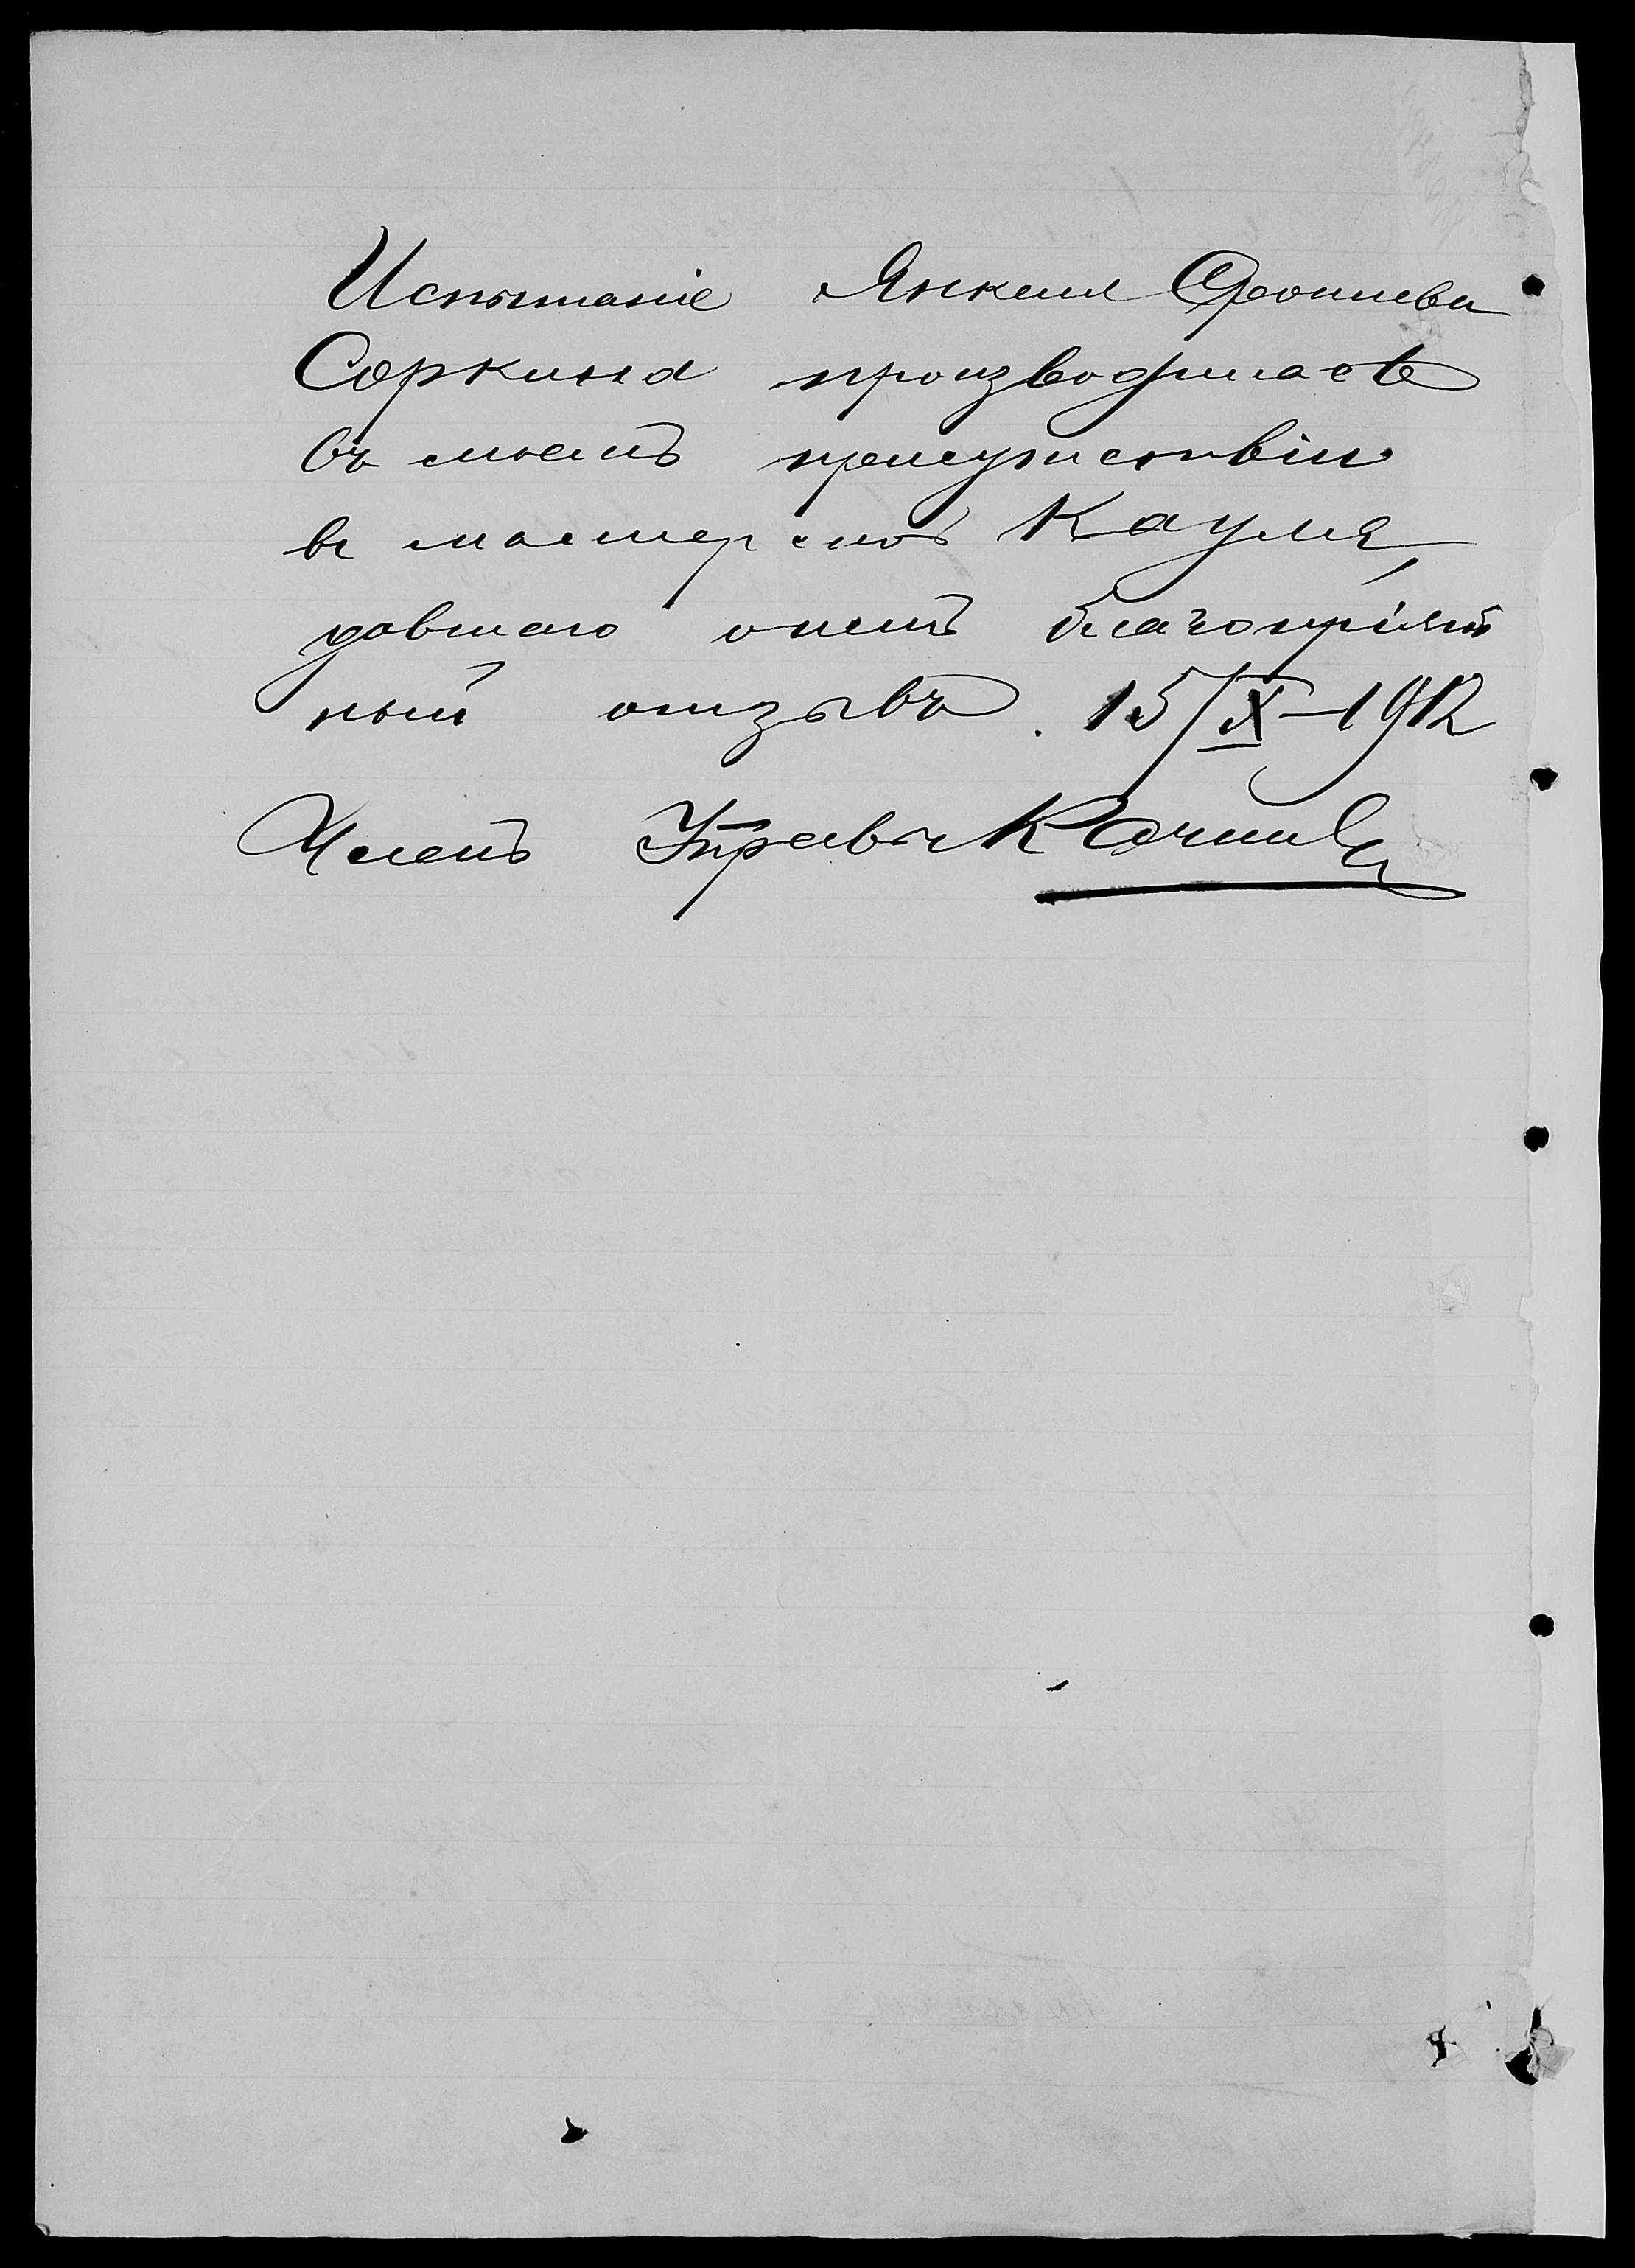 Испытаніе Янкеля Ароніева
Соркина производилась
въ моемъ присутствіи
въ мастерской Кауля,
давшаго о немъ благопріят
ный отзывъ. 15/IX–1912
Членъ Управы